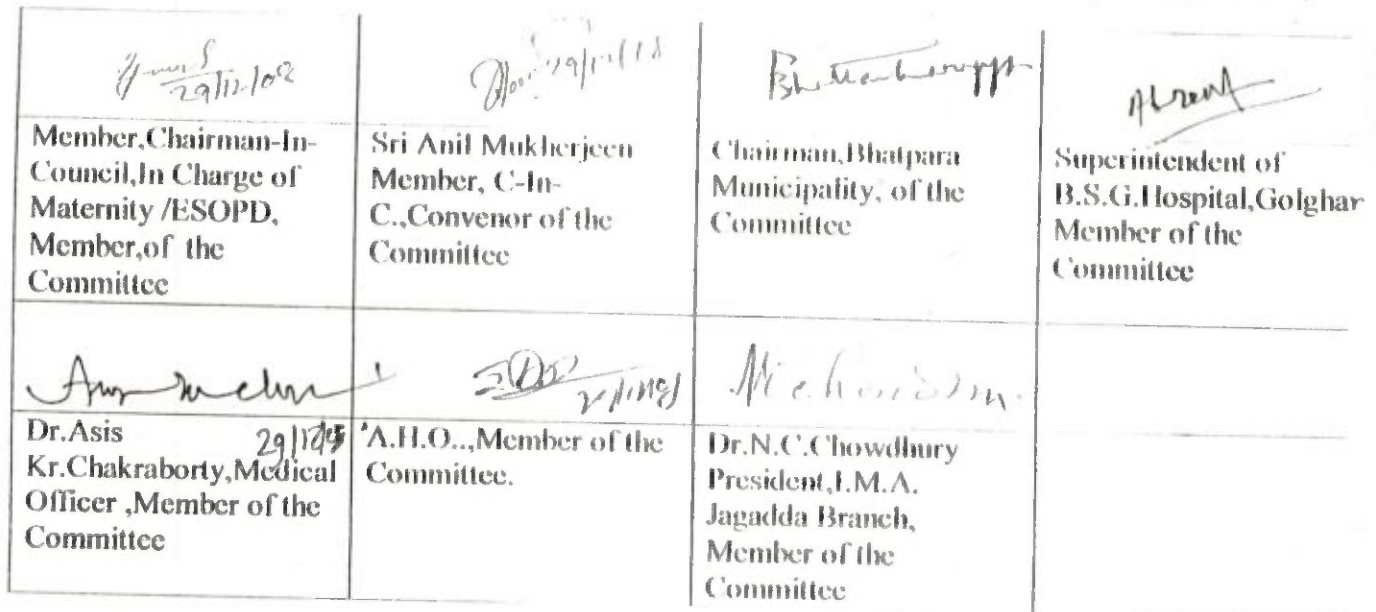 29/12/08
Member,Chairman-In-
Council,In Charge of
Maternity /ESOPD,
Member,of the
Committee
Sri Anil Mukherjeen
Member, C-In-
C.,Convenor of the
Committee
Chairman,Bhatpara
Municipality, of the
Committee
Absent
Superintendent of
B.S.G.Hospital,Golghar
Member of the
Committee
Dr.Asis
Kr.Chakraborty,Medical
Officer ,Member of the
Committee
A.H.O..,Member of the
Committee.
Dr.N.C.Chowdhury
President,I.M.A.
Jagadda Branch,
Member of the
Committee